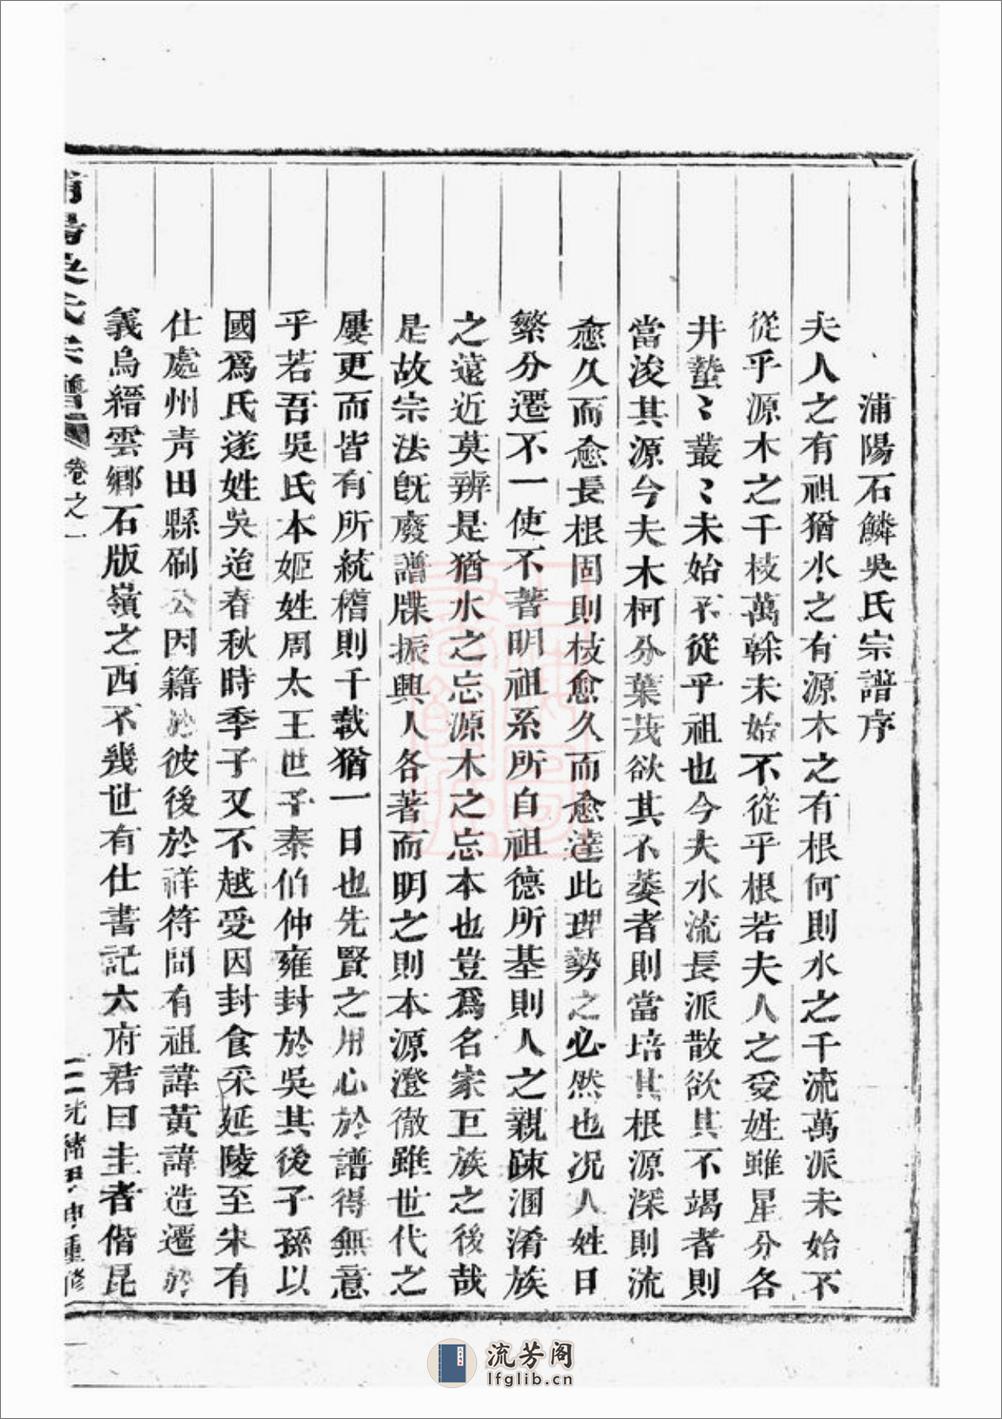 浦陽石鱗吳氏宗譜序
夫人之有祖猶水之有源木之有根何則水之千流萬派未始不
從乎源木之千枝萬榦未始不從乎根若夫人之受姓雖星分各
井蟄〻叢〻未始不從乎祖也今夫水流長派散欲其不竭者則
當浚其源今夫木柯分葉茂欲其不萎者則當培其根源深則流
愈久而愈長根固則枝愈久而愈達此理勢之必然也况人姓日
繁分遷不一使不著明祖系所自祖德所基則人之親疎溷淆族
之遠近莫辨是猶水之忘源木之忘本也豈爲名家巨族之後哉
是故宗法旣廢譜牒振興人各著而明之則本源澄徹雖世代之
屢更而皆有所統稽則千載猶一日也先賢之用心於譜得無意
乎若吾吳氏本姬姓周太王世子泰伯仲雍封於吳其後子孫以
國爲氏遂姓吳迨春秋時季子又不越受因封食采延陵至宋有
仕處州靑田縣刷公因籍於彼後於祥符間有祖諱黃諱造遷於
義烏縉雲鄉石版嶺之西不幾世有仕書記六府君曰圭者偕昆
浦陽吳氏宗譜 卷之一 光緒甲申重修
流芳阁
lfglib.cn